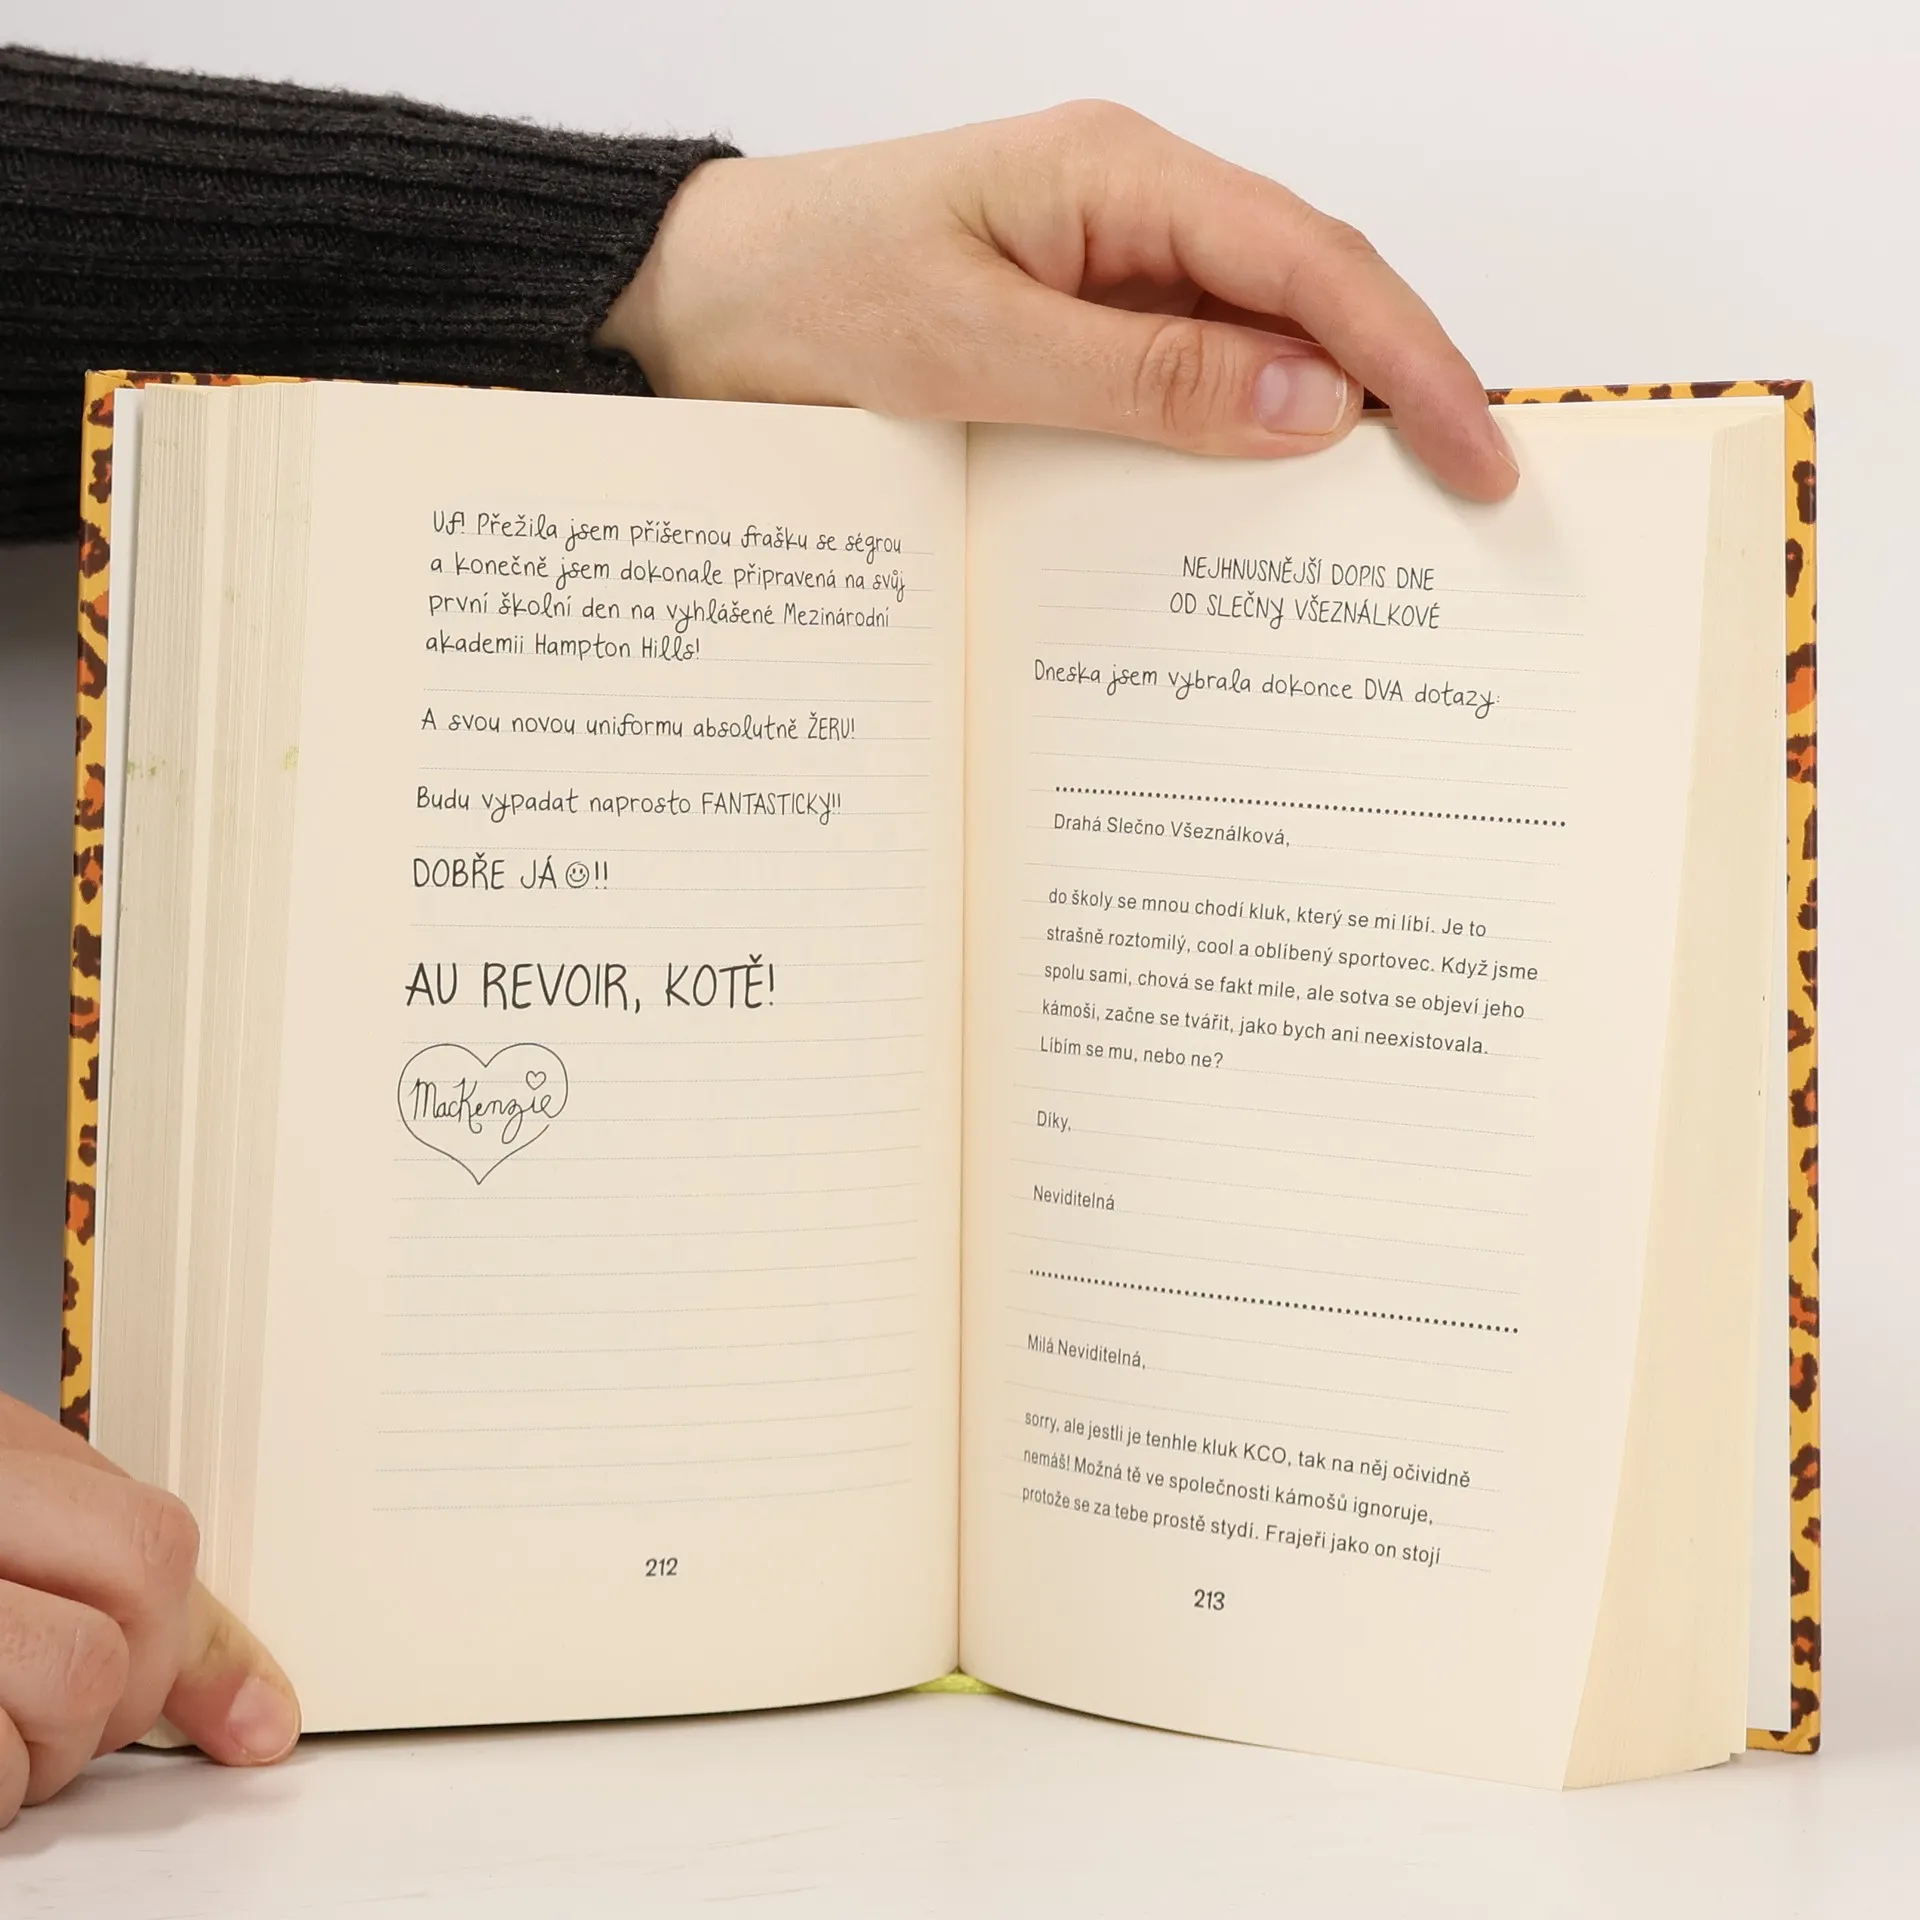 Uf! Přežila jsem příšernou frašku se ségrou
a konečně jsem dokonale připravená na svůj
první školní den na vyhlášené Mezinárodní
akademii Hampton Hills!
A svou novou uniformu absolutně ŽERU!
Budu vypadat naprosto FANTASTICKY!!
DOBŘE JÁ ☺!!
AU REVOIR, KOTĚ!
MacKenzie
212
NEJHNUSNĚJŠÍ DOPIS DNE
OD SLEČNY VŠEZNÁLKOVÉ
Dneska jsem vybrala dokonce DVA dotazy:
Drahá Slečno Všeználková,
do školy se mnou chodí kluk, který se mi líbí. Je to
strašně roztomilý, cool a oblíbený sportovec. Když jsme
spolu sami, chová se fakt mile, ale sotva se objeví jeho
kámoši, začne se tvářit, jako bych ani neexistovala.
Líbím se mu, nebo ne?
Díky,
Neviditelná
Milá Neviditelná,
sorry, ale jestli je tenhle kluk KCO, tak na něj očividně
nemáš! Možná tě ve společnosti kámošů ignoruje,
protože se za tebe prostě stydí. Frajeři jako on stojí
213